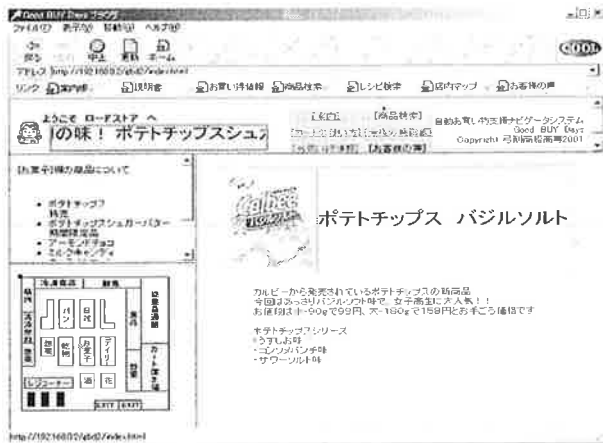 Good BUY Days ブラウザ
ファイル(F) 表示(V) 移動(G) ヘルプ(H)
戻る 中止 更新 ホーム
COOL
アドレス http://192.168.0.2/gbd2/index.html
リンク 案内板 説明書 お買い得情報 商品検索 レシピ検索 店内マップ お客様の声
ようこそ ロードストア へ
の味！ ポテトチップスシュガ
[案内] [商品検索]
[お客様の声]
自動お買い物支援ナビゲータシステム
Good BUY Days
Copyright 弓削商船高専2001
[お菓子]棚の商品について
・ポテトチップス
特売
・ポテトチップスシュガーバター
期間限定品
・アーモンドチョコ
・ミルクキャンディ
Calbee
ポテトチップス バジルソルト
カルビーから発売されているポテトチップスの新商品
今回はあっさりバジルソルト味で、女子高生に大人気！！
お値段は小-90gで99円、大-180gで158円とお手ごろ価格です
ポテトチップスシリーズ
・うすしお味
・コンソメパンチ味
・サワーソルト味
冷凍食品 鮮魚
パン 日視
惣菜 乾物 お菓子 デイリー
レジコーナー 酒 花
カート置き場
EXIT EXIT
http://192.168.0.2/gbd2/index.html